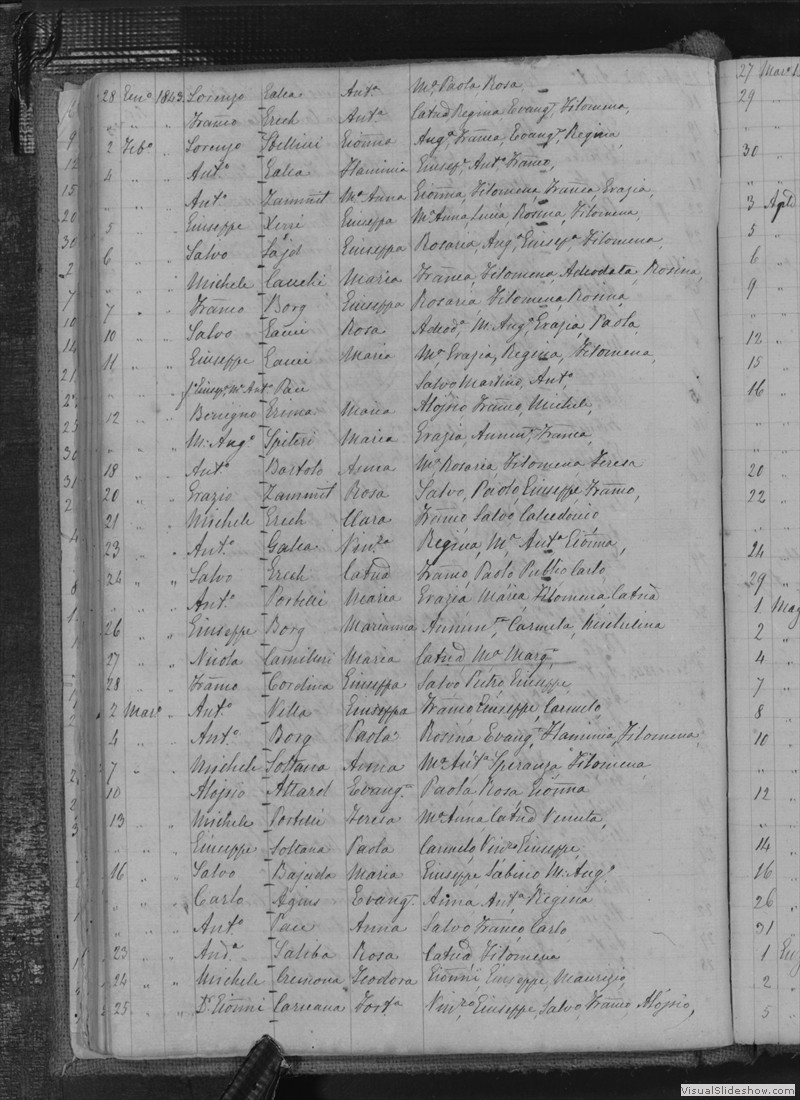 28 Enº 1843 Lorenzo Galea Antª Mª Paola Rosa
" " Franco Grech Antª Catnd Regina Evangta Filomena,
2 Febº " Lorenzo Sbellini Gionna Angª Franca, Evangta Regina,
4 " " Antº Galea Flaminia Giusepª Antª Franco,
" " Antº Zammit Mª Anna Gionna, Filomena Franca, Grazia,
5 " " Giuseppe Xerri Giuseppa Mª Anna, Lucia, Rosina, Filomena,
6 " " Salvo Sajd Giuseppa Rosaria Angª Giusepª Filomena,
" " Michele Cauchi Maria Franca, Filomena, Adeodata, Rosina,
7 " " Franco Borg Giuseppa Rosaria Filomena Rosina,
10 " " Salvo Gauci Rosa Adeodª Mª Angª Grazia, Paola,
11 " " Giuseppe Gauci Maria Mª Grazia, Regina, Filomena,
Mº Antº Pace Salvo Martino, Antº
12 " " Benigno Maria Aloisio Franco, Michele,
" " Mº Angº Spiteri Maria Grazia, Annunta Franca,
18 " " Antº Bartolo Anna Mª Rosaria Filomena Teresa
20 " " Grazio Zammit Rosa Salvo, Paolo Giuseppe, Franco,
21 " " Michele Grech Clara Franco Salvo Calcedonio
23 " " Antº Galea Vinza Regina Mª Antª Gionna,
24 " " Salvo Grech Catnd Franco, Paolo Publio Carlo
" " Antº Portelli Maria Grazia Maria, Filomena, Catnd
26 " " Giuseppe Borg Marianna Annunta, Carmela, Michelina
27 " " Nicola Camilleri Maria Catnd Mª Margta
28 " " Franco Cordina Giuseppa Salvo Pietro Giuseppe
2 Marº " Antº Vella Giuseppa Franco Giuseppe, Carmelo
4 " " Antº Borg Paola Rosina Evangta Flaminia, Filomena,
7 " " Michele Soltana Anna Mª Antª Speranza Filomena
10 " " Aloisio Attard Evangta Paola Rosa Gionna
13 " " Michele Portelli Teresa Mª Anna Catnd Venuta,
" " Giuseppe Soltana Paola Carmelo, Vinzo Giuseppe
16 " " Salvo Bajada Maria Giuseppe Sabino Mº Angº
" " Carlo Agius Evangta Anna Antª Regina
" " Antº Pace Anna Salvo Franco Carlo
23 " " Andª Saliba Rosa Catnd Filomena
24 " " Michele Cremona Teodora Gionni, Giuseppe Maurizio,
25 " " Dr Gionni Caruana Fortª Vinzo, Giuseppe, Salvo, Franco Aloisio,
27 Marº
29
30
3 April
5
6
9
12
15
16
20
22
24
29
1 Mag
2
4
7
8
10
12
14
16
26
31
1
2
5
VisualSlideshow.com